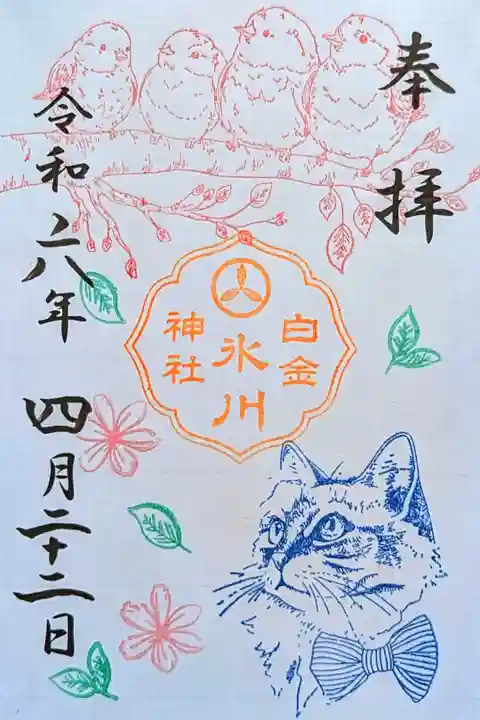 奉拝
白金
氷川
神社
令和六年四月二十二日